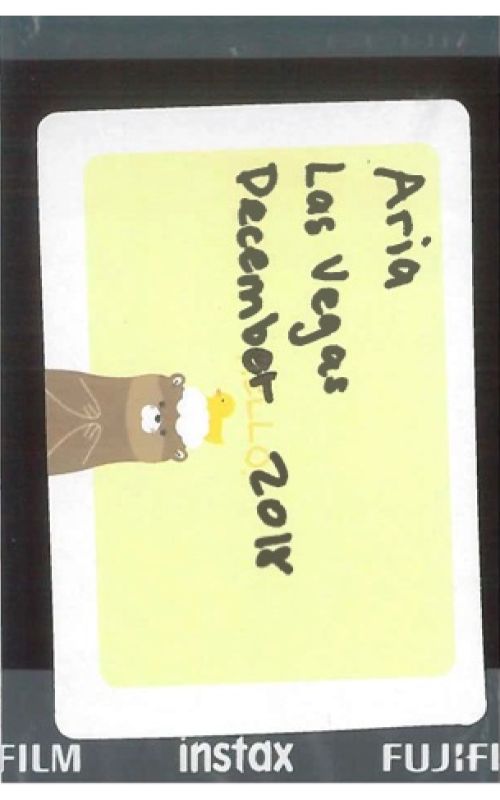 Aria
Las Vegas
December 2018
HELLO.
FILM
instax
FUJIFI